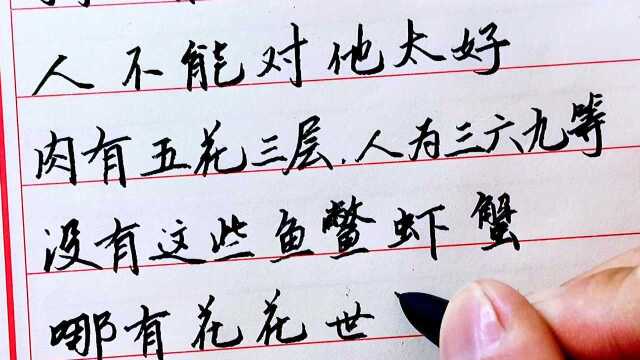 人不能对他太好
肉有五花三层.人为三六九等
没有这些鱼鳖虾蟹
哪有花花世